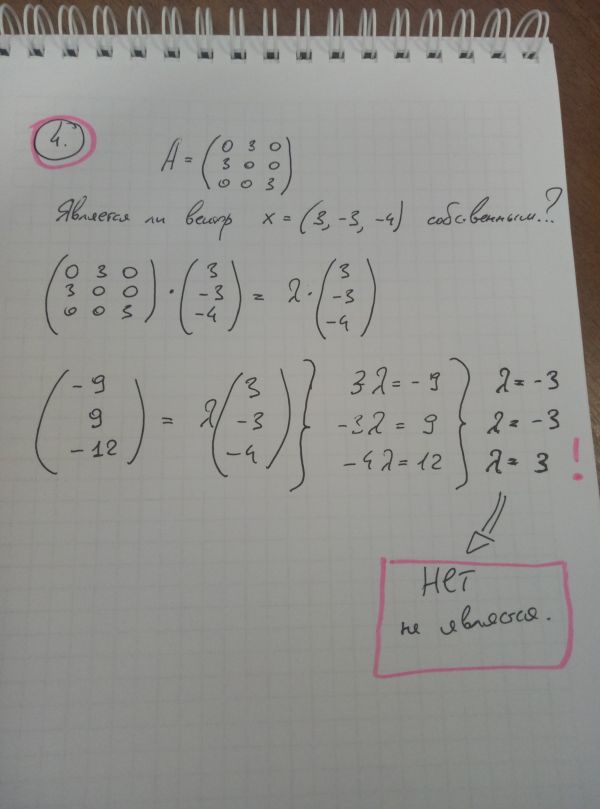 4.
A = (0 3 0
3 0 0
0 0 3)
Является ли вектор x = (3, -3, -4) собственным..?
(0 3 0
3 0 0
0 0 3) · (3
-3
-4) = λ · (3
-3
-4)
(-9
9
-12) = λ (3
-3
-4) } 3λ = -9
-3λ = 9
-4λ = 12 } λ = -3
λ = -3
λ = 3 !
НЕТ
не является.